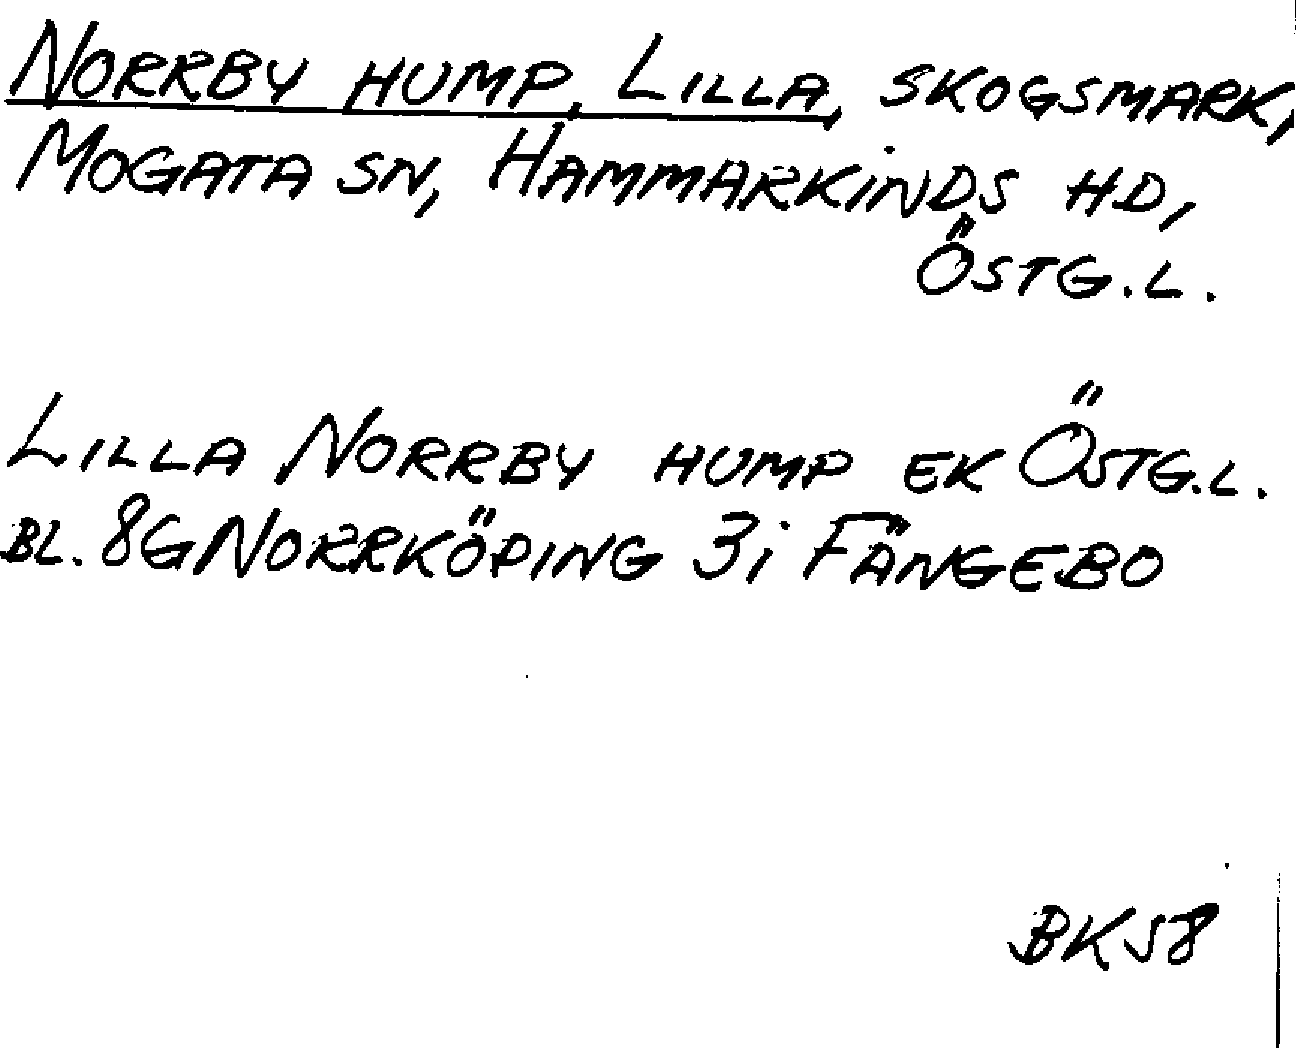 NORRBY HUMP, LILLA, SKOGSMARK,
MOGATA SN, HAMMARKINDS HD,
ÖSTG.L.
LILLA NORRBY HUMP EK ÖSTG.L.
BL. 8G NORRKÖPING 3i FÄNGEBO
BK 58